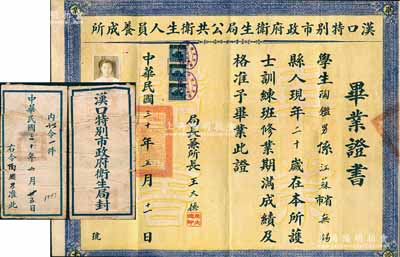 漢口特別市政府衛生局公共衛生人員養成所
畢業證書
學生陶鑑男係江蘇省市無錫
縣人現年二十歲在本所護
士訓練班修業期滿成績及
格准予畢業此證
局長兼所長王大德
中華民國三十年五月十一日
漢口特別市政府衛生局封
號
內令一件
中華民國三十年 月 日
右令陶鑑男准此